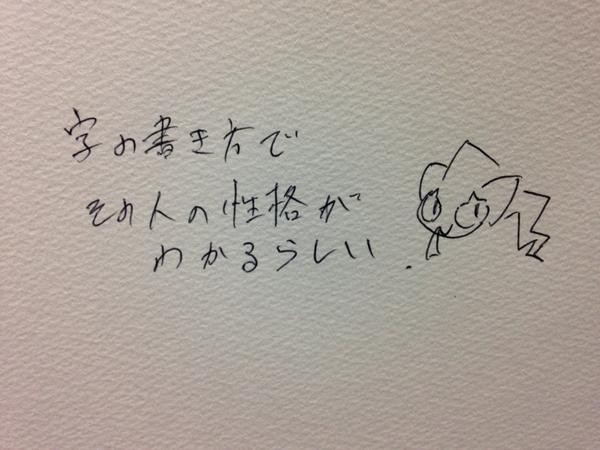 字の書き方で
その人の性格が
わかるらしい.